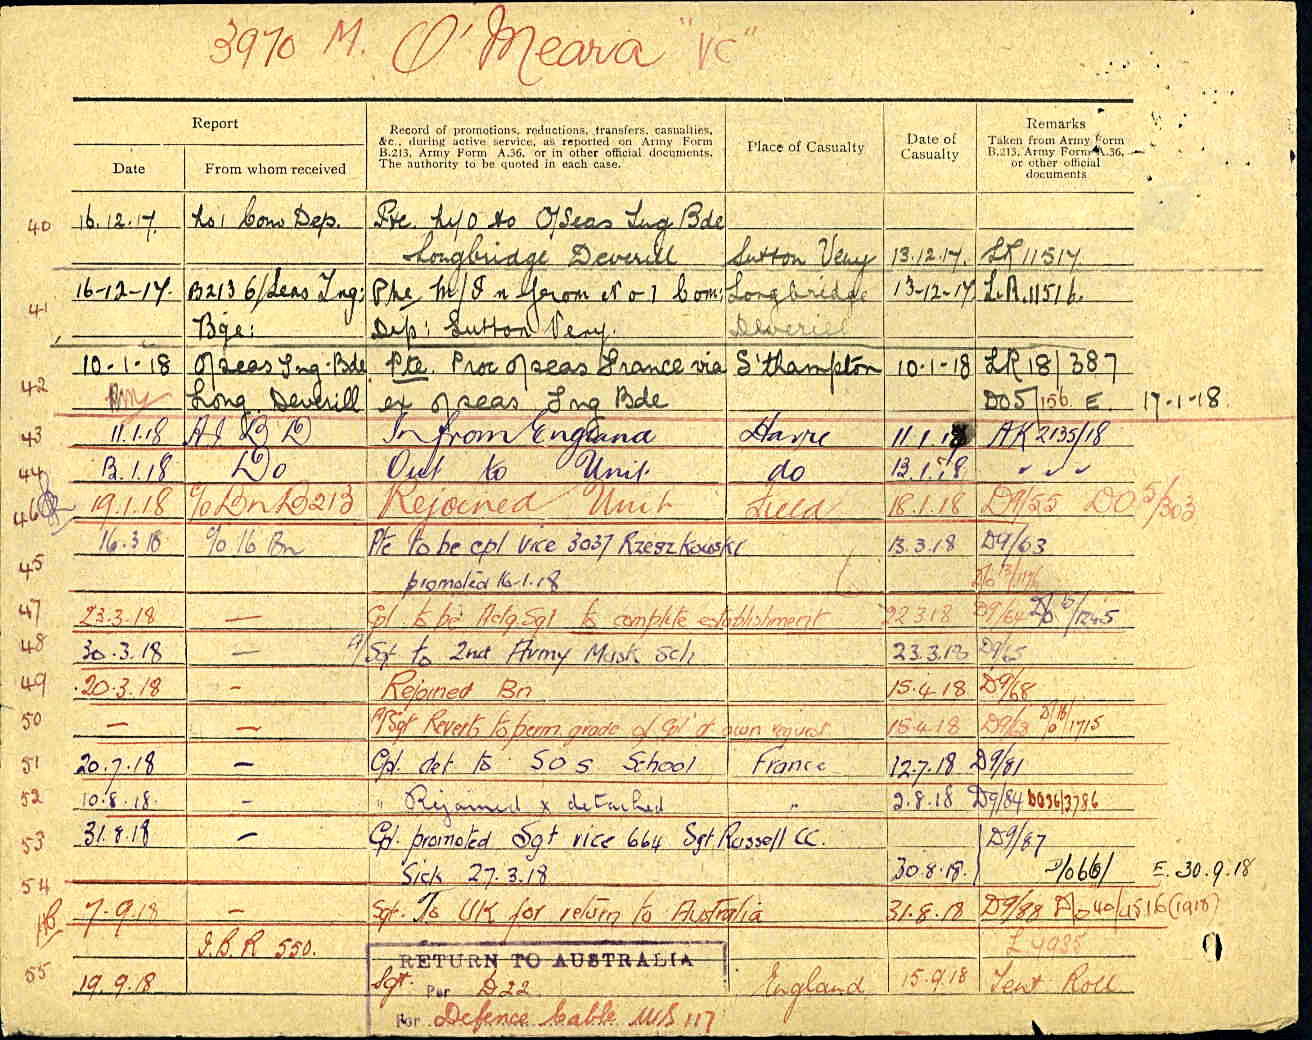 3970 M. O'Meara "VC"
Report
Record of promotions, reductions, transfers, casualties, &c., during active service, as reported on Army Form B.213, Army Form A.36, or in other official documents. The authority to be quoted in each case.
Place of Casualty
Date of Casualty
Remarks
Taken from Army Form B.213, Army Form A.36, or other official documents
Date
From whom received
40 16.12.17. No 1 Com Dep. Pte. M/O to O/Seas Tng Bde
Longbridge Deverill Sutton Veny 13.12.17. LR 11517
41 16-12-17. B213 O/Seas Tng: Pte M/I n from No 1 Com: Longbridge 13-12-17 L.R. 11516.
Bge: Dep: Sutton Veny. Deverill
42 10-1-18 O/seas Tng. Bde Pte. Proc o/seas France via S'thampton 10-1-18 LR 18/387
Long Deverill ex o/seas Tng Bde DO5/156 E. 17-1-18.
43 11.1.18 A I B D In from England Havre 11.1.18 AK 2135/18
44 13.1.18 Do Out to Unit do 13.1.18 " " "
46 19.1.18 c/o Bn B213 Rejoined Unit Field 18.1.18 D9/55 DO 5/303
45 16.3.18 c/o 16 Bn Pte to be cpl vice 3037 Rzeszkowski 13.3.18 D9/63
promoted 16.1.18
47 23.3.18 — Cpl to be Actg. Sgt to complete establishment 22.3.18 D9/64 /1245
48 30.3.18 — A/Sgt to 2nd Army Musk Sch 23.3.18 D9/65
49 20.3.18 — Rejoined Bn 15.4.18 D9/68
50 — — A/Sgt Reverts to perm. grade of Cpl at own request 15.4.18 D9/63 /1715
51 20.7.18 — Cpl. det to SOS School France 12.7.18 D9/81
52 10.8.18. — " Rejoined x detached " 2.8.18 D9/84 DO36/3786
53 31.8.18 — Cpl. promoted Sgt vice 664 Sgt Russell CC. D9/87
Sick 27.3.18 30.8.18. E. 30.9.18
54 7.9.18 — Sgt. To UK for return to Australia 31.8.18 D9/88 (1918)
I.B.R 550.
RETURN TO AUSTRALIA
55 19.9.18 Sgt. Per D22 England 15.9.18 Tent Roll
For Defence Cable MS 117